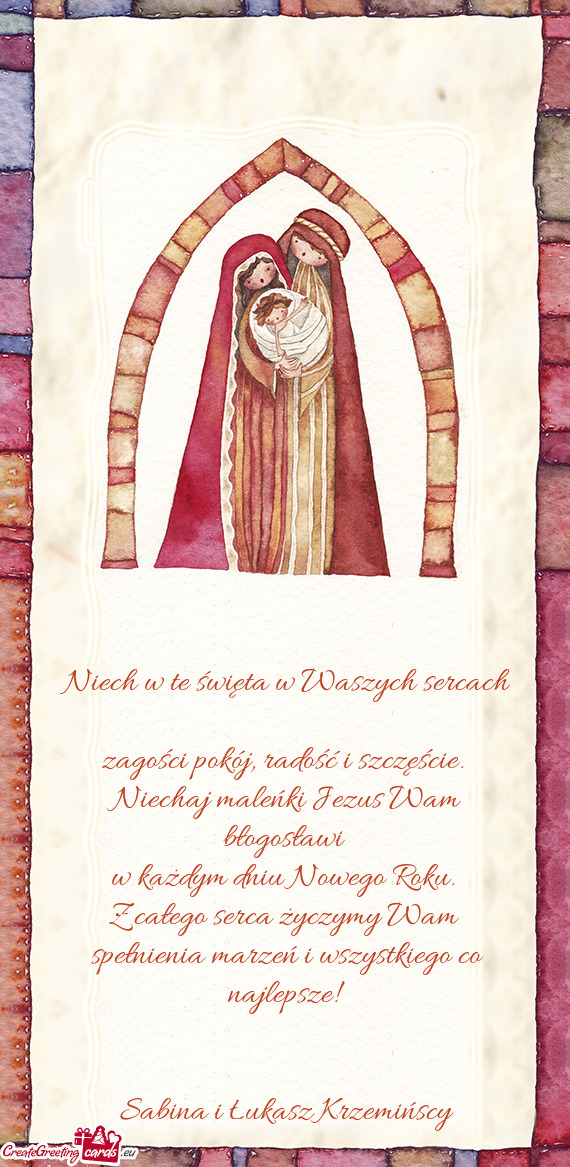 Niech w te święta w Waszych sercach
zagości pokój, radość i szczęście.
Niechaj maleńki Jezus Wam
błogosławi
w każdym dniu Nowego Roku.
Z całego serca życzymy Wam
spełnienia marzeń i wszystkiego co
najlepsze!
Sabina i Łukasz Krzemińscy
CreateGreeting cards .eu